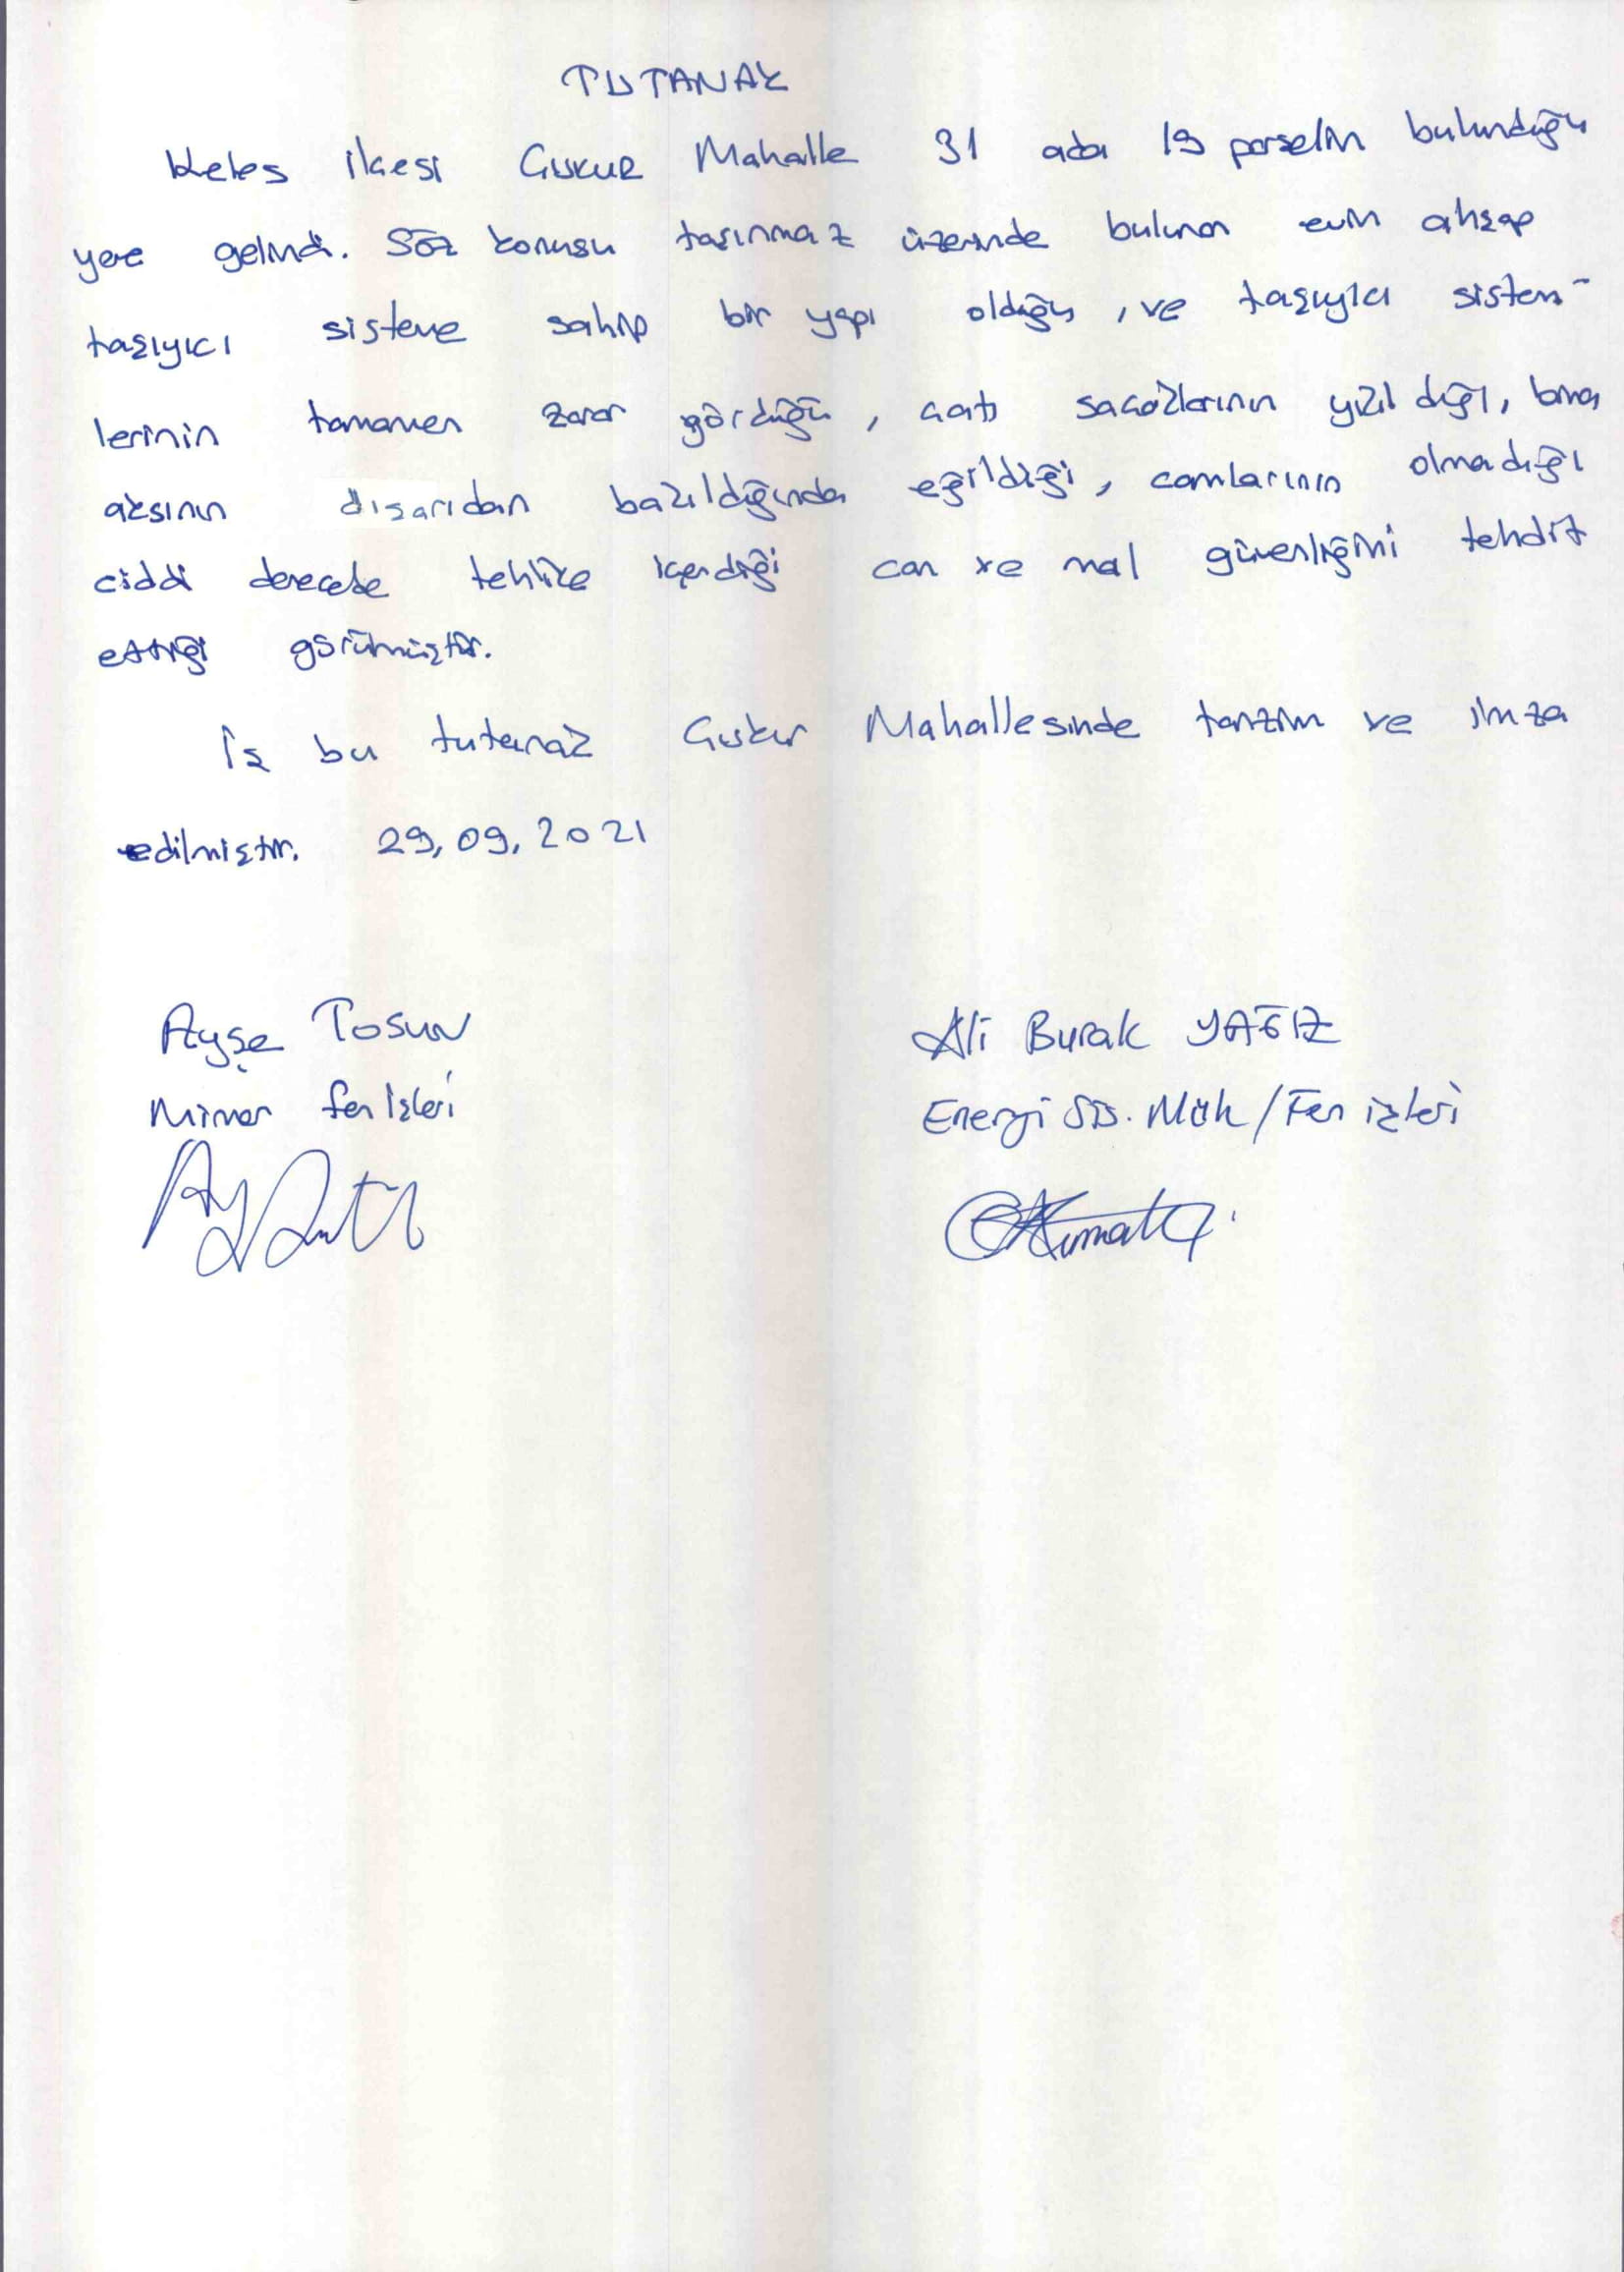 TUTANAK
Keles ilçesi Çukur Mahalle 31 ada 19 parselin bulunduğu
yere gelindi. Söz konusu taşınmaz üzerinde bulunan evin ahşap
taşıyıcı sisteme sahip bir yapı olduğu, ve taşıyıcı sistem-
lerinin tamamen zarar gördüğü, çatı saçaklarının yıkıldığı, bina
aksının dışarıdan bakıldığında eğildiği, camlarının olmadığı
ciddi derecede tehlike içerdiği can ve mal güvenliğini tehdit
ettiği görülmüştür.
İş bu tutanak Çukur Mahallesinde tanzim ve imza
edilmiştir. 29,09,2021
Ayşe Tosun
Mimar Fen İşleri
Ali Burak YAĞIZ
Energi Sis. Müh/Fen işleri